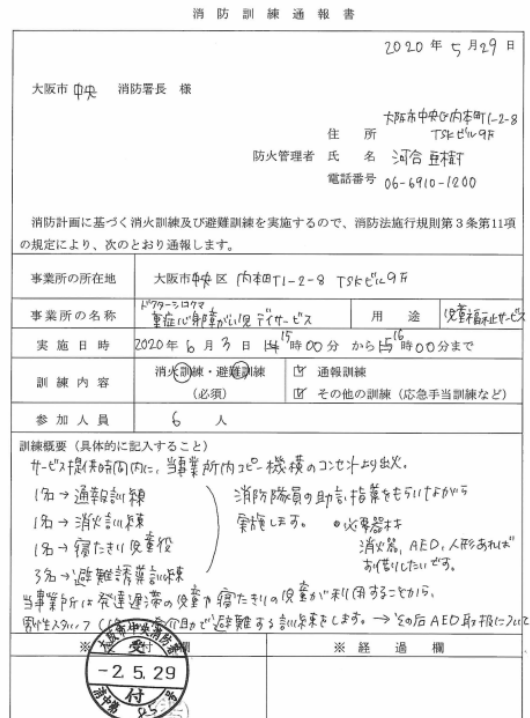 消防訓練通報書
2020年5月29日
大阪市 中央 消防署長 様
大阪市中央区内本町1-2-8
住所 TSKビル9F
防火管理者 氏名 河合 亜樹
電話番号 06-6910-1200
消防計画に基づく消火訓練及び避難訓練を実施するので、消防法施行規則第3条第11項
の規定により、次のとおり通報します。
事業所の所在地 大阪市中央区 内本町1-2-8 TSKビル9F
ドクターシロクマ
事業所の名称 重症心身障がい児デイサービス 用途 児童福祉サービス
実施日時 2020年6月3日 15時00分 から 16時00分まで
訓練内容 消火訓練・避難訓練 ☑ 通報訓練
(必須) ☑ その他の訓練(応急手当訓練など)
参加人員 6人
訓練概要(具体的に記入すること)
サービス提供時間内に、当事業所内コピー機横のコンセントより出火。
1名→通報訓練 消防隊員の助言、指導をもらいながら
1名→消火訓練 実施します。 ●必要器材
1名→寝たきり児童役 消火器、AED、人形あれば
3名→避難誘導訓練 お借りしたいです。
当事業所は発達遅滞の児童や寝たきりの児童が利用することから、
男性スタッフ 介助で避難する訓練をします。→その后AED取扱について
※受付欄 ※経過欄
大阪市中央消防署
受
-2.5.29
付
消中第 85号